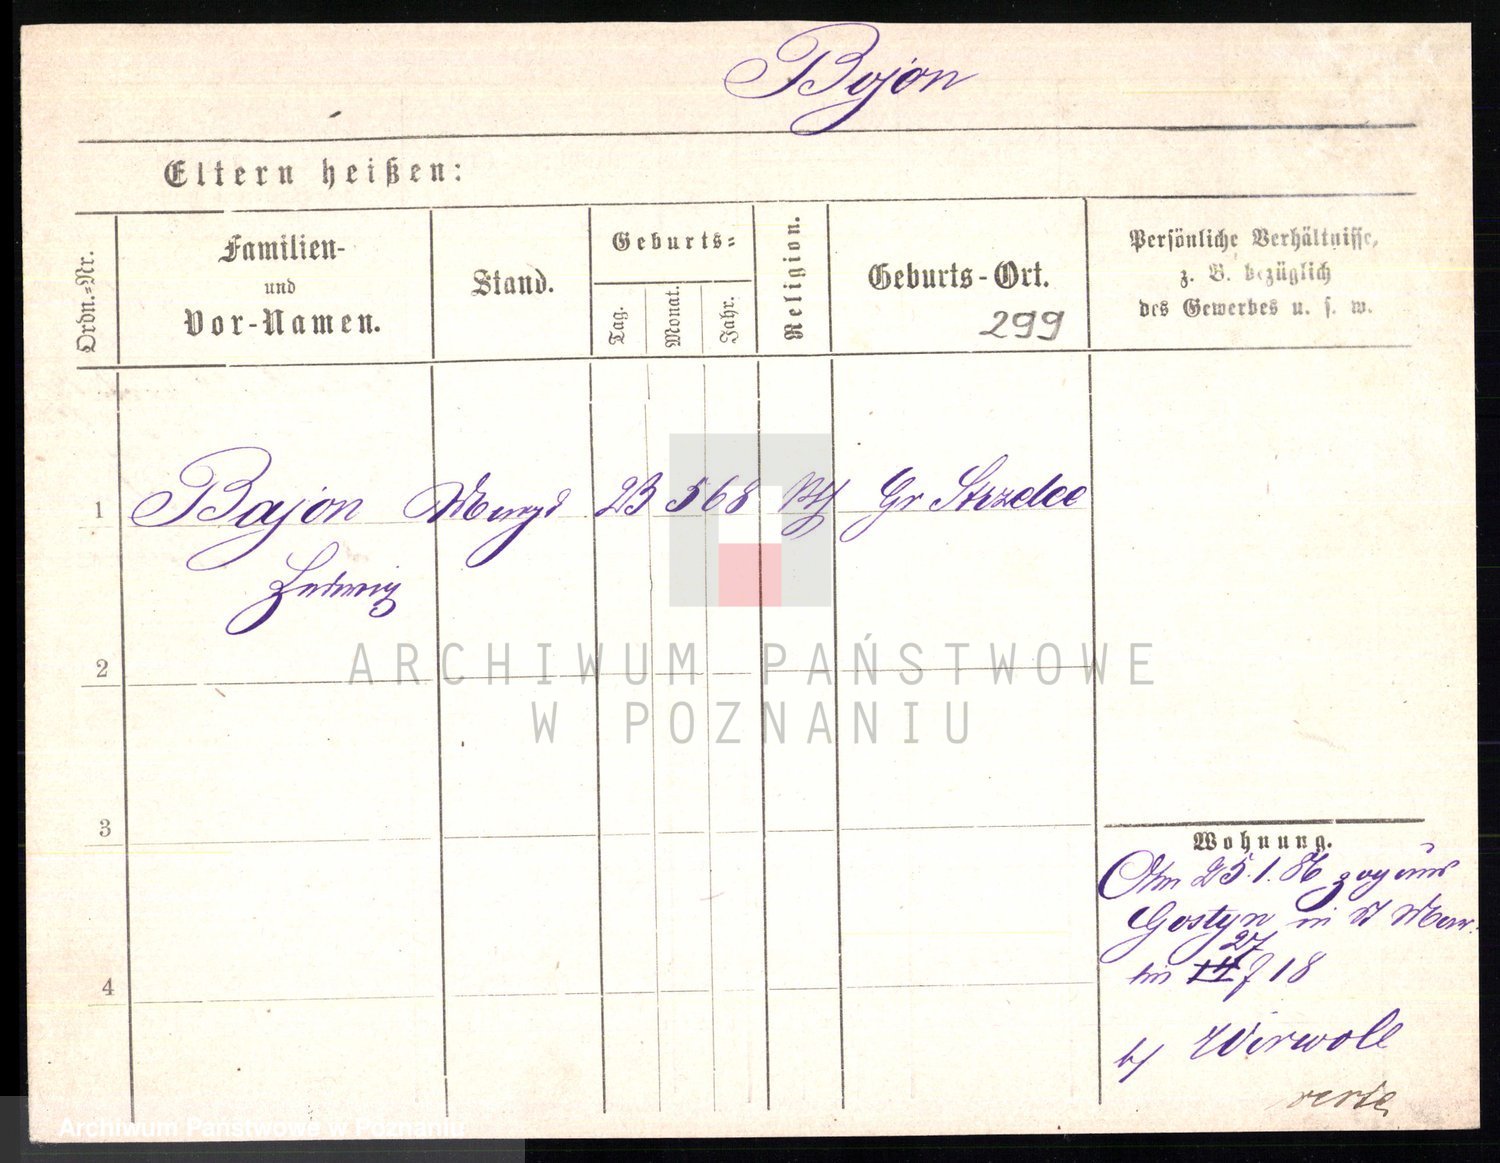 Bajon
Eltern heißen:
Ordn.-Nr.
Familien-
und
Vor-Namen.
Stand.
Geburts-
Tag.
Monat.
Jahr.
Religion.
Geburts-Ort.
299
Persönliche Verhältnisse,
z. B. bezüglich
des Gewerbes u. s. w.
1 Bajon 23 5 68 Gr Strzelce
Hedwig
2
3
4
Wohnung.
Am 25.1. 86 zog aus
Gostyn in
27
18
b/
verte
ARCHIWUM PAŃSTWOWE
W POZNANIU
Archiwum Państwowe w Poznaniu